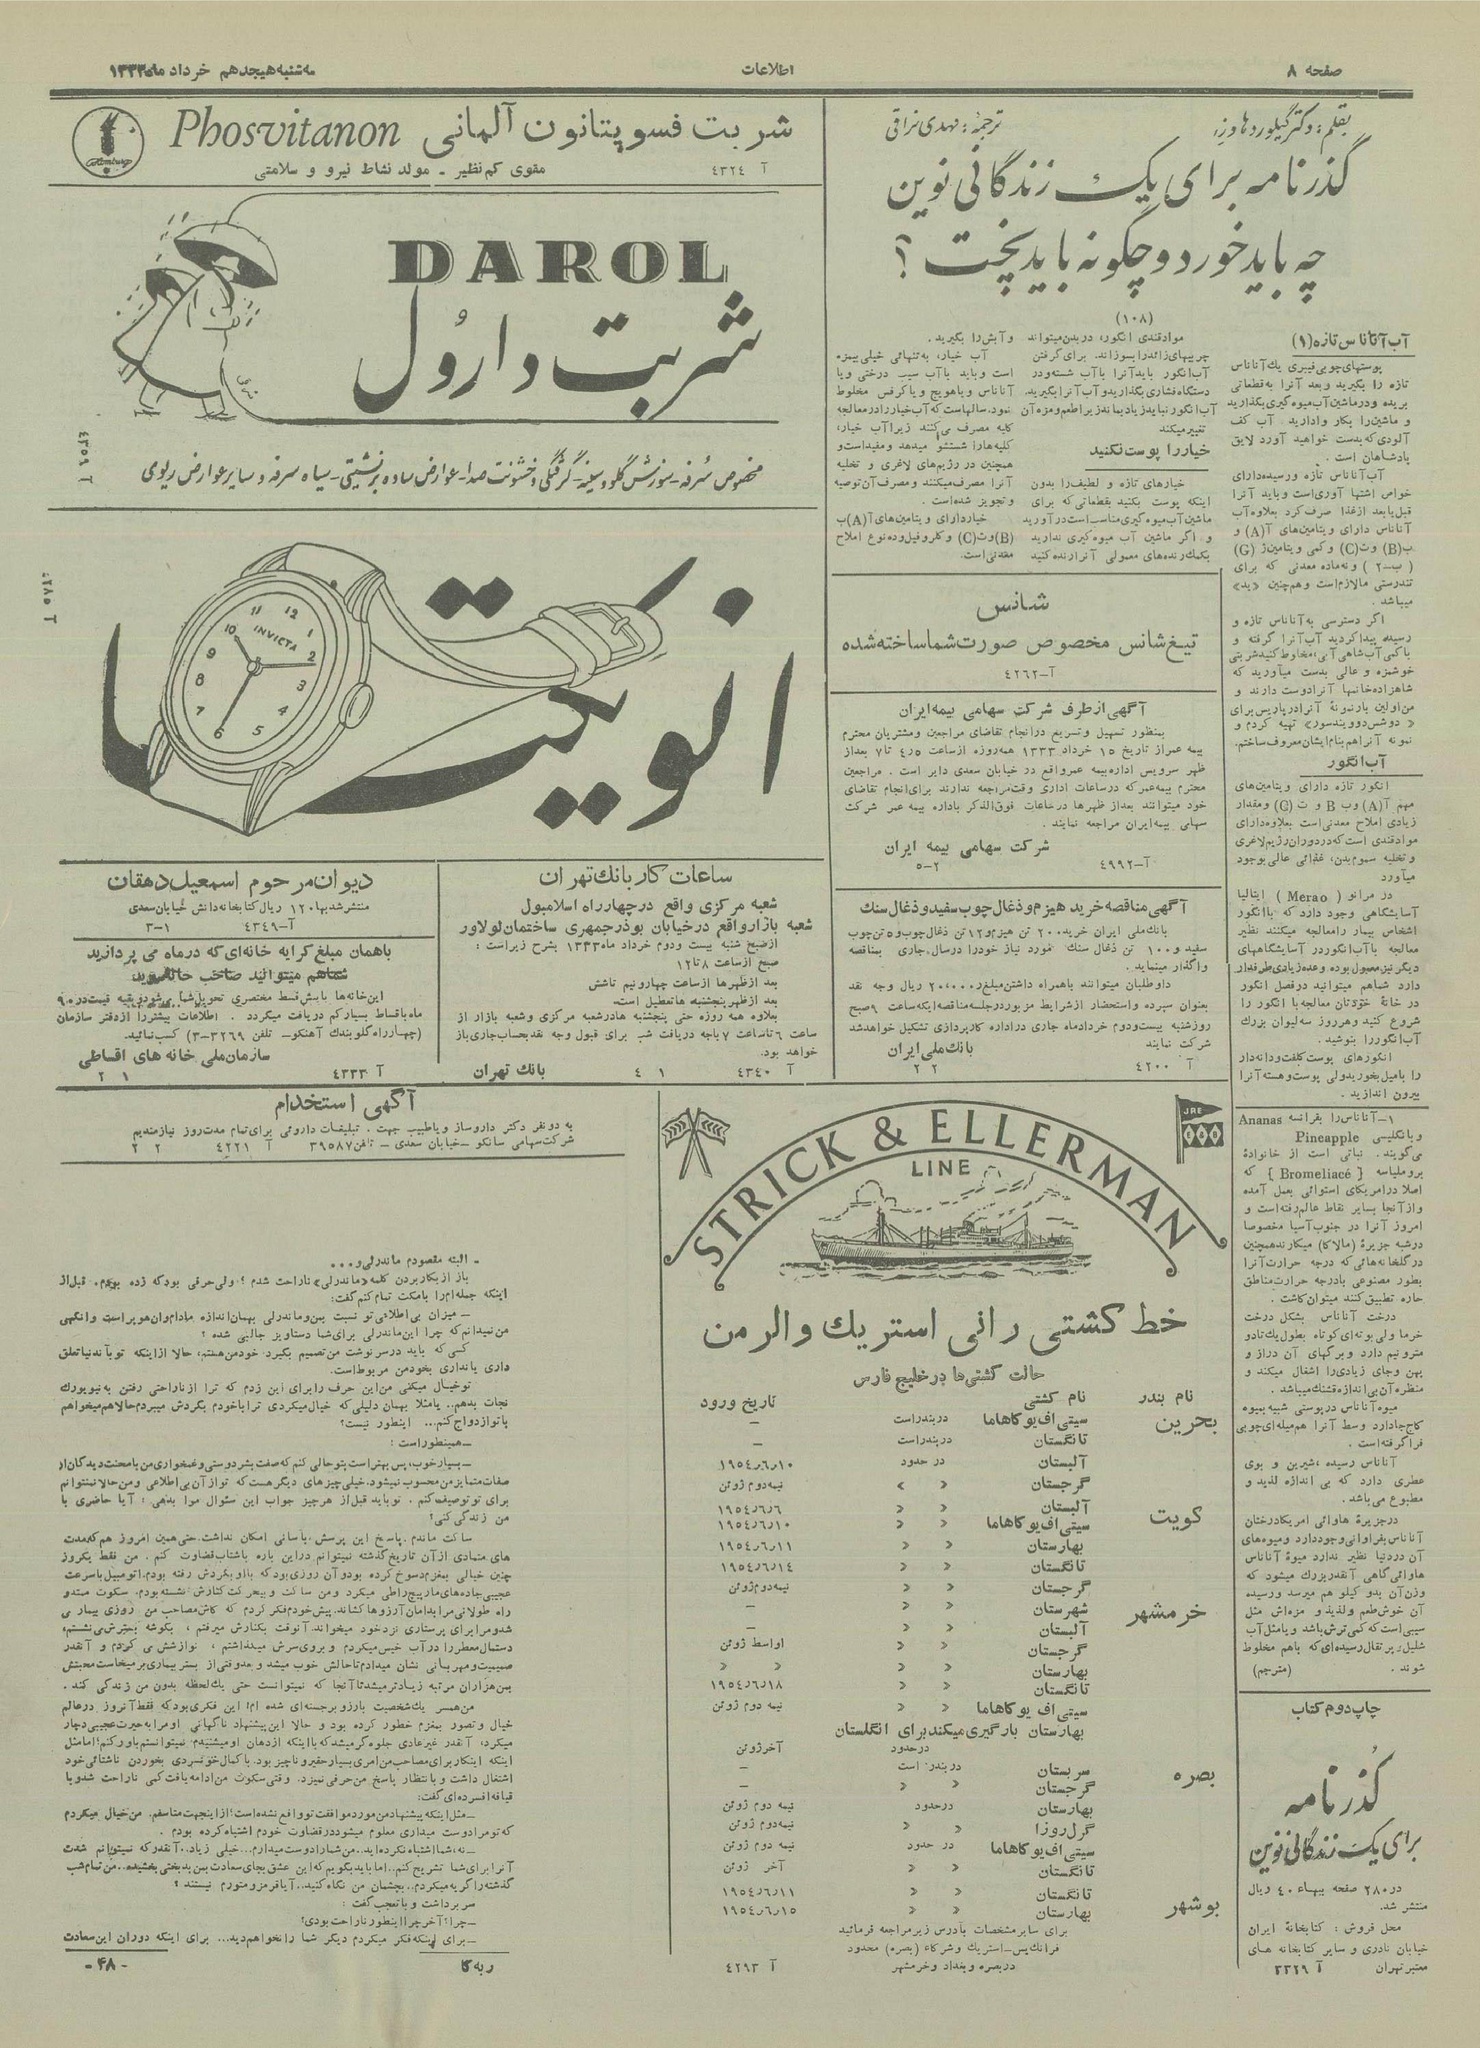 صفحه ۸
اطلاعات
سه شنبه هیجدهم خرداد ماه ۱۳۳۳
بقلم : دکتر گیلورد هاوزر
ترجمه : مهدی نراقی
گذرنامه برای یک زندگانی نوین
چه باید خورد و چگونه باید پخت ؟
(۱۰۸)
آب آناناس تازه (۱)
پوستهای چوبی فیبری یك آناناس
تازه را بگیرید و بعد آنرا به قطعاتی
بریده و در ماشین آب میوه گیری بگذارید
و ماشین را بکار وادارید. آب کف
آلودی که بدست خواهید آورد لایق
پادشاهان است .
آب آناناس تازه و رسیده دارای
خواص اشتها آوری است و باید آنرا
قبل یا بعد از غذا صرف کرد بعلاوه آب
آناناس دارای ویتامین های آ (A) و
ب (B) و ث (C) و کمی ویتامین ژ (G)
( ب ـ ۲ ) و نه ماده معدنی که برای
تندرستی ما لازم است و هم چنین «ید»
میباشد .
اگر دسترسی به آناناس تازه و
رسیده پیدا کردید آب آنرا گرفته و
با کمی آب شاهی آبی مخلوط کنید شربتی
خوشمزه و عالی بدست میآورید که
شاهزاده خانمها آنرا دوست دارند و
من اولین بار نمونهٔ آنرا در پاریس برای
« دوشس دوویندسور » تهیه کردم و
نمونه آنرا هم بنام ایشان معروف ساختم.
آب انگور
انگور تازه دارای ویتامین های
مهم آ (A) و ب B و ث (C) و مقدار
زیادی املاح معدنی است بعلاوه دارای
مواد قندی است که در دوران رژیم لاغری
و تخلیه سموم بدن، غذائی عالی بوجود
میآورد
در مرانو ( Merao ) ایتالیا
آسایشگاهی وجود دارد که با انگور
اشخاص بیمار را معالجه میکنند نظیر
معالجه با آب انگور در آسایشگاههای
دیگر نیز معمول بوده و عده زیادی طرفدار
دارد شما هم میتوانید در فصل انگور
در خانهٔ خودتان معالجه با انگور را
شروع کنید و هر روز سه لیوان بزرك
آب انگور را بنوشید .
انگورهای پوست کلفت و دانه دار
را با میل بخورید ولی پوست و هسته آنرا
بیرون اندازید .
۱ـ آناناس را بفرانسه Ananas
و بانگلیسی Pineapple
می گویند. نباتی است از خانوادهٔ
برومیلیاسه [ Bromeliacé ] که
اصلا در امریکای استوائی بعمل آمده
و از آنجا بسایر نقاط عالم رفته است و
امروز آنرا در جنوب آسیا مخصوصا
در شبه جزیرهٔ (مالاکا) میکارند همچنین
در گلخانه هائی که درجه حرارت آنرا
بطور مصنوعی با درجه حرارت مناطق
حاره تطبیق کنند میتوان کاشت .
درخت آناناس بشکل درخت
خرما ولی بوته ای کوتاه بطول یك تا دو
متر و نیم دارد و برگهای آن دراز و
پهن و جای زیادی را اشغال میکند و
منظره آن بی اندازه قشنگ میباشد .
میوه آناناس در پوستی شبیه بمیوه
کاج جا دارد وسط آنرا هم میله ای چوبی
فرا گرفته است .
آناناس رسیده ، شیرین و بوی
عطری دارد که بی اندازه لذید و
مطبوع می باشد .
در جزیرهٔ هاوائی امریکا درختان
آناناس بفراوانی وجود دارد و میوه های
آن در دنیا نظیر ندارد میوهٔ آناناس
هاوائی گاهی آنقدر بزرك میشود که
وزن آن بدو کیلو هم میرسد و رسیده
آن خوش طعم و لذیذ و مزه اش مثل
سیبی است که کمی ترش باشد و یا مثل آب
شلیل و پرتقال رسیده ای که باهم مخلوط
شوند . (مترجم)
چاپ دوم کتاب
گذرنامه
برای یک زندگانی نوین
در ۲۸۰ صفحه ببهاء ۴۰ ریال
منتشر شد.
محل فروش : کتابخانهٔ ایران
خیابان نادری و سایر کتابخانه های
معتبر تهران آ ۲۲۲۹
مواد قندی انگور ، در بدن میتواند
چربیهای زائد را بسوزاند. برای گرفتن
آب انگور باید آنرا با آب شسته و در
دستگاه فشاری بگذارید و آب آنرا بگیرید.
آب انگور نباید زیاد بماند زیرا طعم و مزه آن
تغییر میکند
خیار را پوست نکنید
خیارهای تازه و لطیف را بدون
اینکه پوست بکنید بقطعاتی که برای
ماشین آب میوه گیری مناسب است در آورید
و اگر ماشین آب میوه گیری ندارید
بکمك رنده های معمولی آنرا رنده کنید
و آبش را بگیرید.
آب خیار ، به تنهائی خیلی بیمزه
است و باید با آب سیب درختی و یا
آناناس و یا هویج و یا کرفس مخلوط
نمود. سالهاست که آب خیار را در معالجه
کلیه مصرف می کنند زیرا آب خیار ،
کلیه ها را شستشو میدهد و مفید است و
همچنین در رژیم های لاغری و تخلیه
آنرا مصرف میکنند و مصرف آن توصیه
و تجویز شده است .
خیار دارای ویتامین های آ (A) ب
(B) و ث (C) و کلروفیل و ده نوع املاح
معدنی است.
شانس
تیغ شانس مخصوص صورت شما ساخته شده
آ–۴۲۶۲
آگهی از طرف شرکت سهامی بیمه ایران
بمنظور تسهیل و تسریع در انجام تقاضای مراجعین و مشتریان محترم
بیمه عمر از تاریخ ۱۵ خرداد ۱۳۳۳ همه روزه از ساعت ۴٫۵ تا ۷ بعد از
ظهر سرویس اداره بیمه عمر واقع در خیابان سعدی دایر است . مراجعین
محترم بیمه عمر که در ساعات اداری وقت مراجعه ندارند برای انجام تقاضای
خود میتوانند بعد از ظهرها در ساعات فوق الذکر باداره بیمه عمر شرکت
سهامی بیمه ایران مراجعه نمایند .
شرکت سهامی بیمه ایران
آ–۴۹۹۲ ۲–۵
آگهی مناقصه خرید هیزم و ذغال چوب سفید و ذغال سنك
بانك ملی ایران خرید ۲۰۰ تن هیزم و ۱۲ تن ذغال چوب و ۵ تن چوب
سفید و ۱۰۰ تن ذغال سنك مورد نیاز خود را در سال جاری بمناقصه
واگذار مینماید.
داوطلبان میتوانند باهمراه داشتن مبلغ ۲۰،۰۰۰ ریال وجه نقد
بعنوان سپرده و استحضار از شرایط مزبور در جلسه مناقصه ایکه ساعت ۹ صبح
روز شنبه بیست و دوم خرداد ماه جاری در اداره کارپردازی تشکیل خواهد شد
شرکت نمایند
بانك ملی ایران
آ ۴۲۰۰ ۲ ۲
شربت فسویتانون آلمانی Phosvitanon
مقوی کم نظیر ـ مولد نشاط نیرو و سلامتی
آ ۴۳۲۴
DAROL
شربت دارول
مخصوص سرفه - سوزش گلو و سینه - گرفتگی و خشونت صدا - عوارض ساده برنشیتی - سیاه سرفه و سایر عوارض ریوی
آ ۴۳۵۹
انویکتا
INVICTA
12 1 2 3 4 5 6 7 8 9 10 11
ساعات کار بانك تهران
شعبه مرکزی واقع در چهارراه اسلامبول
شعبه بازار واقع در خیابان بوذرجمهری ساختمان لولاور
از صبح شنبه بیست ودوم خرداد ماه ۱۳۳۳ بشرح زیر است :
صبح از ساعت ۸ تا ۱۲
بعد از ظهرها از ساعت چهارونیم تا شش
بعد از ظهر پنجشنبه ها تعطیل است.
بعلاوه همه روزه حتی پنجشنبه ها در شعبه مرکزی و شعبه بازار از
ساعت ۶ تا ساعت ۷ باجه دریافت شب برای قبول وجه نقد بحساب جاری باز
خواهد بود.
آ ۴۳۴۰ ۱ ۴ بانك تهران
دیوان مرحوم اسمعیل دهقان
منتشر شد بها ۱۲۰ ریال کتابخانه دانش خیابان سعدی
آ–۴۳۴۹ ۱–۳
باهمان مبلغ کرایه خانه ای که درماه می پردازید
شما هم میتوانید صاحب خانه شوید
این خانه ها با پیش قسط مختصری تحویل شما میشود و بقیه قیمت در ۹۰
ماه با قساط بسیار کم دریافت میگردد . اطلاعات بیشتر را از دفتر سازمان
(چهارراه گلوبندك آهنکو ـ تلفن ۳۲۶۹–۳) کسب نمائید.
سازمان ملی خانه های اقساطی
آ ۴۳۳۳ ۱ ۲
آگهی استخدام
به دو نفر دکتر داروساز و یا طبیب جهت . تبلیغات داروئی برای تمام مدت روز نیازمندیم
شرکت سهامی سانکو ـ خیابان سعدی ـ تلفن ۳۹۵۸۷ آ ۴۲۲۱ ۲ ۲
STRICK & ELLERMAN
LINE
JRE
خط کشتی رانی استریك والرمن
حالت کشتی ها در خلیج فارس
نام بندر نام کشتی تاریخ ورود
بحرین سیتی اف یوکاهاما در بندر است –
تانگستان در بندر است –
آلبستان در حدود ۱۹۵۴ر۶ر۱۰
گرجستان » » نیمه دوم ژوئن
کویت آلبستان » » ۱۹۵۴ر۶ر۶
سیتی اف یوکاهاما » » ۱۹۵۴ر۶ر۱۰
بهارستان » » ۱۹۵۴ر۶ر۱۱
تانگستان » » ۱۹۵۴ر۶ر۱۴
گرجستان » » نیمه دوم ژوئن
خرمشهر شهرستان » » –
آلبستان » » –
گرجستان » » اواسط ژوئن
بهارستان » » » »
تانگستان » » ۱۹۵۴ر۶ر۱۸
سیتی اف یوکاهاما » » نیمه دوم ژوئن
بهارستان بارگیری میکند برای انگلستان
در حدود آخر ژوئن
بصره سربستان در بندر است –
گرجستان » » –
بهارستان در حدود نیمه دوم ژوئن
گرل روزا » » نیمه دوم ژوئن
سیتی اف یوکاهاما در حدود نیمه دوم ژوئن
تانگستان » » آخر ژوئن
بوشهر تانگستان » » ۱۹۵۴ر۶ر۱۱
بهارستان » » ۱۹۵۴ر۶ر۱۵
برای سایر مشخصات بآدرس زیر مراجعه فرمائید
فرانکیس ـ استریك و شرکاء (بصره) محدود
در بصره و بغداد و خرمشهر آ ۴۲۹۳
ـ البته مقصودم ماندرلی و...
باز از بکار بردن کلمه «ماندرلی» ناراحت شدم ؟ ولی حرفی بود که زده بودم. قبل از
اینکه جمله ام را با مکث تمام کنم گفت:
ـ میزان بی اطلاعی تو نسبت بمن و ماندرلی بهمان اندازه مادام وان هوپر است وانگهی
من نمیدانم که چرا این ماندرلی برای شما دستاویز جالبی شده ؟
کسی که باید در سرنوشت من تصمیم بگیرد خودمن هستم، حالا از اینکه تو بآن دنیا تعلق
داری یا نداری بخود من مربوط است.
تو خیال میکنی من این حرف را برای این زدم که ترا از ناراحتی رفتن به نیویورك
نجات بدهم.. یا مثلا بهمان دلیلی که خیال میکردی ترا با خودم بگردش میبردم حالا هم میخواهم
با تو ازدواج کنم... اینطور نیست؟
ـ همینطور است :
ـ بسیار خوب، پس بهتر است بتو حالی کنم که صفت بشر دوستی و غمخواری من با محنت دیدگان از
صفات متمایز من محسوب نمیشود. خیلی چیزهای دیگر هست که تو از آن بی اطلاعی و من حالا نمیتوانم
برای تو توصیف کنم . تو باید قبل از هر چیز جواب این سئوال مرا بدهی : آیا حاضری با
من زندگی کنی؟
ساکت ماندم . پاسخ این پرسش بآسانی امکان نداشت. حتی همین امروز هم که مدت
های متمادی از آن تاریخ گذشته نمیتوانم در این باره باشتاب قضاوت کنم . من فقط یکروز
چنین خیالی بمغزم رسوخ کرده بود و آن روزی بود که با او بگردش رفته بودم. اتومبیل با سرعت
عجیبی جاده های مارپیچ را طی میکرد و من ساکت و بیحرکت کنارش نشسته بودم. سکوت ممتد و
راه طولانی مرا بدامان آرزوها کشاند. پیش خودم فکر کردم که کاش مصاحب من روزی بیمار می
شد و مرا برای پرستاری نزد خود میخواند. آنوقت بکنارش میرفتم ، بگوشه بسترش می نشستم،
دستمال معطر را در آب خیس میکردم و بروی سرش میگذاشتم ، نوازشش می کردم و آنقدر
صمیمیت و مهربانی نشان میدادم تا حالش خوب میشد و موقتی از بستر بیماری بر میخاست محبتش
بمن هزاران مرتبه زیادتر میشد تا آنجا که نمیتوانست حتی یك لحظه بدون من زندگی کند.
من همسر یك شخصیت بارز و برجسته ای شده ام! این فکری بود که فقط آنروز در عالم
خیال و تصور بمغزم خطور کرده بود و حالا این پیشنهاد ناگهانی او مرا به حیرت عجیبی دچار
میکرد، آنقدر غیر عادی جلوه گر میشد که با اینکه از دهان او میشنیدم نمیتوانستم باور کنم! اما مثل
اینکه اینکار برای مصاحب من امری بسیار حقیر و ناچیز بود. با کمال خونسردی بخوردن ناشتائی خود
اشتغال داشت و بانتظار پاسخ من حرفی نمیزد. وقتی سکوت من ادامه یافت کمی ناراحت شد و با
قیافه افسرده ای گفت:
ـ مثل اینکه پیشنهاد من مورد موافقت تو واقع نشده است؟ از اینجهت متاسفم. من خیال میکردم
که تو مرا دوست میداری معلوم میشود در قضاوت خودم اشتباه کرده بودم .
ـ نه، شما اشتباه نکرده اید... من شما را دوست میدارم... خیلی زیاد.. آنقدر که نمیتوانم شدت
آنرا برای شما تشریح کنم.. اما باید بگویم که این عشق بجای سعادت بمن بدبختی بخشیده.. من تمام شب
گذشته را گریه میکردم.. بچشمان من نگاه کنید.. آیا قرمز و متورم نیستند ؟
سر برداشت و با تعجب گفت :
ـ چرا؟ آخر چرا اینطور ناراحت بودی؟
ـ برای اینکه فکر میکردم دیگر شما را نخواهم دید... برای اینکه دوران این سعادت
ربه کا
-۴۸-